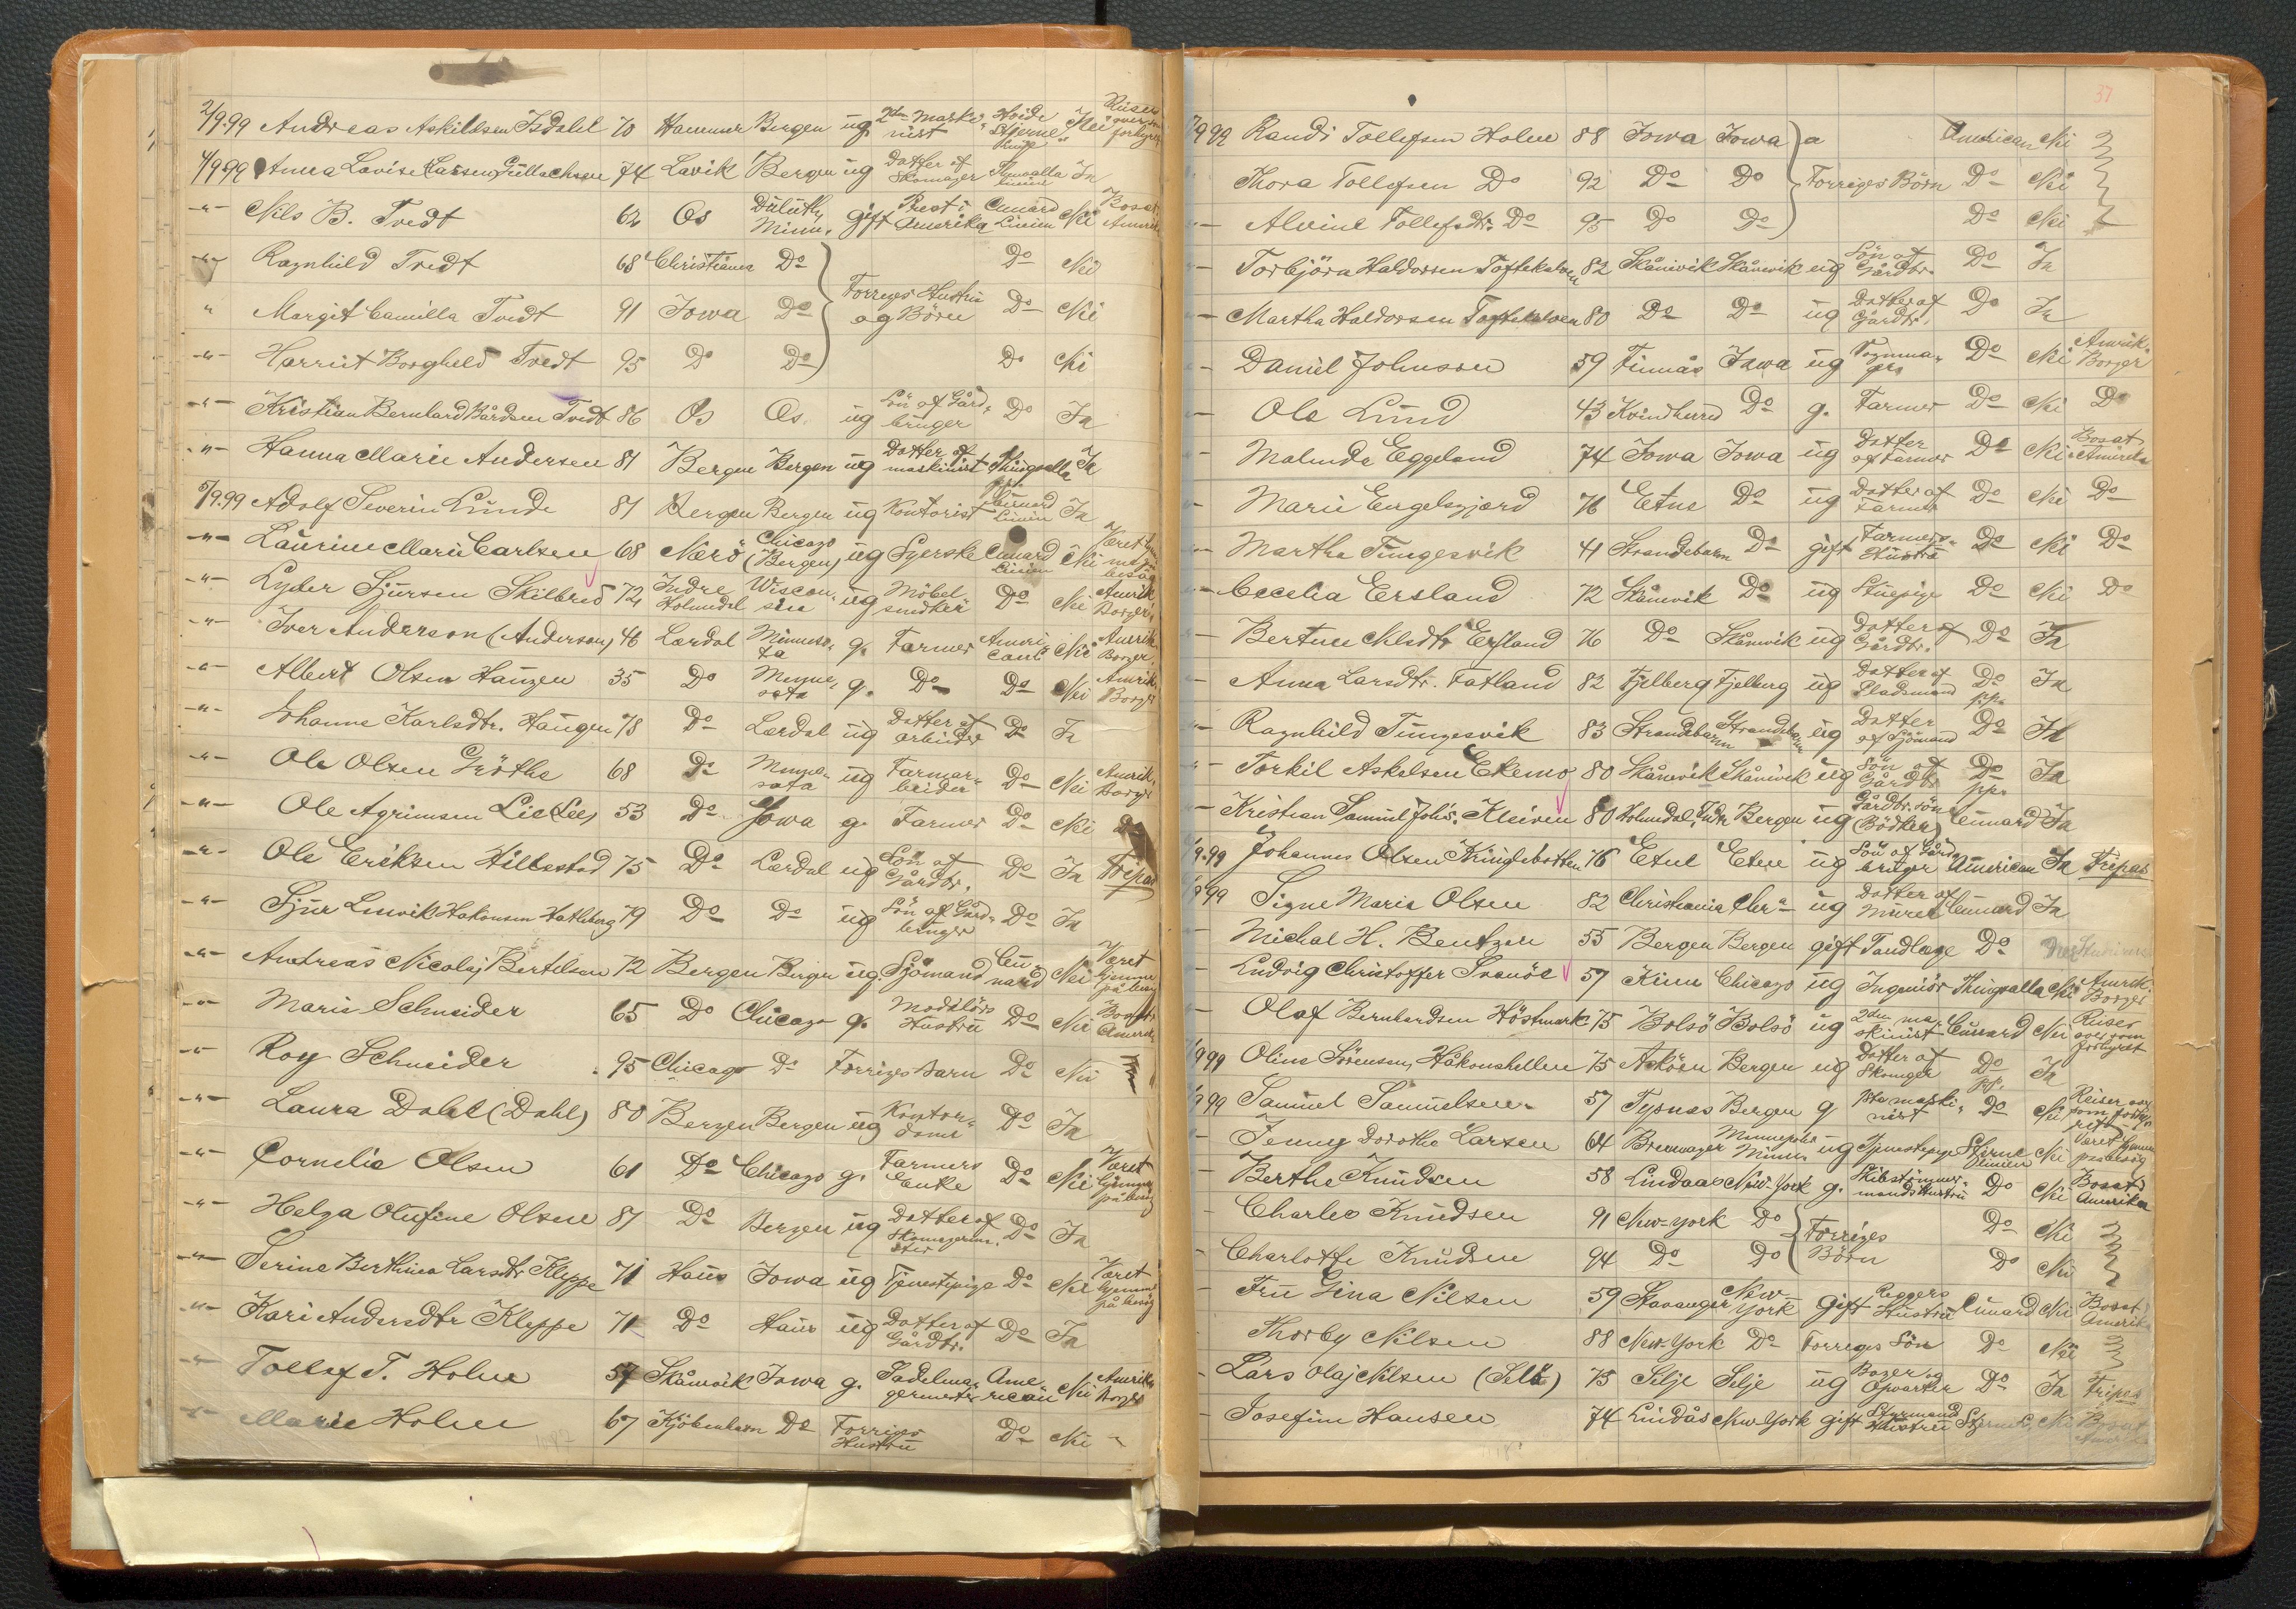 2/9.99 Andreas Askildsen Isdahl 70 Hammer Bergen ug. 2den Maski- nist Höide Stjerne Nei Reiser over som forhyret
4/9.99 Anna Lovise Larsen Gullachsen 74 Lavik Bergen ug Datter af Skomager Thingvalla Linien Ja
-"- Nils B. Tvedt 62 Os Duluth, Minn. gift Præst i Amerika Cunard Linien Nei Bosat Amerik
-"- Ragnhild Tvedt 68 Christiania Do Do Nei
" Margit Camilla Tvedt 91 Iowa Do Forriges Hustru og Börn Do Nei
-"- Harriet Borghild Tvedt 95 Do Do Do Nei
-"- Kristian Bernhard Bårdsen Tvedt 86 Os Os ug Sön af Gård- bruger Do Ja
-"- Hanna Marie Andersen 81 Bergen Bergen ug Datter af maskinist Thingvalla Ja
5/9.99 Adolf Severin Lunde 81 Bergen Bergen ug Kontorist Cunard Linien Ja
-"- Laurine Marie Carlsen 68 Nærö Chicago (Bergen) ug Syerske Cunard Linien Nei Været
-"- Lyder Sjursen Skilbred 72 Indre Holmedal Wiscon- sin ug Möbel snedker Do Nei Amerik Borger
-"- Iver Anderson (Anderson) 46 Lærdal Minneso- ta g. Farmer Ameri- can Nei Amerik. Borger.
-"- Albert Olsen Haugen 35 Do Minne- sota g. Do Do Nei Amerik. Borger
-"- Johanne Karlsdtr. Haugen 78 Do Lærdal ug Datter af arbeider Do Ja
-"- Ole Olsen Gröthe 68 Do Minne- sota ug Farmar- beider Do Nei Amrik. Borger
-"- Ole Agrimsen Lie (Lee) 53 Do Iowa g. Farmer Do Nei Do
-"- Ole Eriksen Hillestad 75 Do Lærdal ug Sön af Gårdbr. Do Ja Fripas
-"- Sjur Lewik Hakonsen Hatleberg 79 Do Do ug Sön af Gård- bruger Do Ja
-"- Andreas Nicolaj Bertelsen 72 Bergen Bergen ug. Sjömand Cu- nard Nei Været hjemme på besög
-"- Marie Schneider 65 Do Chicago g. Hustru Do Nei Bosat Amerik
-"- Roy Schneider 95 Chicago Do Forriges Barn Do Nei
-"- Laura Dahl (Dahl) 80 Bergen Bergen ug Kontor- dame Do Ja
-"- Cornelia Olsen 61 Do Chicago g. Farmers Enke Do Nei Været hjemme på besög
-"- Helga Olufine Olsen 81 Do Bergen ug Datter af Skomagerm- ster Do Ja
-"- Serine Berthine Larsdtr Kleppe 71 Haus Iowa ug Tjenestepige Do Nei Været hjemme på besög
-"- Kari Andersdtr Kleppe 71 Do Haus ug Datter af Gårdbr. Do Ja
-"- Tollef T. Holm 54 Skånevik Iowa g. Sadelma- germester Ame- rican Nei Amerik. Borger
-"- Marie Holm 67 Kjöbenhavn Do Forriges Hustru Do Nei "
37
7/9 99 Randi Tollefsen Holm 88 Iowa Iowa American Nei
Thora Tollefsen Do 92 Do Do Forriges Börn Do Nei
"- Alvine Tollefsdtr. Do 95 Do Do Do Nei
"- Torbjörn Haldorsen Toftekalven 82 Skånevik Skånevik ug Sön af Gårdbr. Do Ja
"- Martha Haldorsen Toftekalven 80 Do Do ug Datter af Gårdbr. Do Ja
"- Daniel Johnson 59 Finnås Iowa ug Do Nei Amerik. Borger
"- Ole Lund 43 Kvindherred Do g. Farmer Do Nei Do
Malinda Eggeland 74 Iowa Iowa ug Datter af Farmer Do Nei Bosat i Amerika
"- Marie Engelsgjærd 76 Etne Do ug Datter af Farmer Do Nei Do
"- Martha Tungesvik 41 Strandebarm Do gift Farmers- Hustru Do Nei Do
"- Cecelia Ersland 72 Skånevik Do ug Stuepige Do Nei Do
"- Bertine Nilsdtr Ersland 76 Do Skånevik ug Datter af Gårdbr. Do Ja
"- Anna Larsdtr. Fatland 82 Fjelberg Fjelberg ug Datter af Pladsmand Do pp. Ja
"- Ragnhild Tungesvik 83 Strandebarm Strandebarm ug Datter af Sjömand Do Ja
"- Torkil Askelsen Ekemo 80 Skånevik Skånevik ug Sön af Gårdbr. Do pp. Ja
"- Kristian Samuel Johs. Kleiven 80 Holmedal, Indre Bergen ug Gårdbr. sön (Bödker) Cunard Ja
/9.99 Johannes Olsen Kringlebotten 76 Etne Etne ug Sön af Gård- bruger American Ja Fripas
/9 99 Signe Marie Olsen 82 Christiania Chra ug Datter af Murer Cunard Ja
Michal H. Bentzen 55 Bergen Bergen gift Tandlæge Do Nei
"- Ludvig Christoffer Svanöe 57 Kinn Chicago ug Ingeniör Thingvalla Nei Amerik. Borger
"- Olaf Bernhardsen Höstmark 75 Bolsö Bolsö ug 2den ma- skinist Cunard Nei Reiser over som forhyret
/9 99 Oline Sörensen, Håkonshellen 75 Asköen Bergen ug Datter af Skomager Do pp. Ja
/9 99 Samuel Samuelsen 57 Tysnes Bergen g 1ste maski- nist Do Nei Reiser over som forhy- ret
"- Jenny Dorothea Larsen 64 Bremanger Minneapolis Minn. ug Tjenestepige Stjerne Linien Nei Været hjemme paa besög
"- Berthe Knudsen 58 Lindaas New-York g. Skibstömmer- mands Hustru Do Nei Bosat i Amerika
"- Charles Knudsen 91 New-York Do Forriges Börn Do Nei
"- Charlotte Knudsen 94 Do Do Do Nei
"- Fru Gina Nilsen 59 Stavanger New York gift Riggers Hustru Cunard Nei Bosat i Amerika
"- Thorby Nilsen 88 New-York Do Forriges Sön Do Nei
"- Lars Olaj Nilsen (Selö) 75 Selje Selje ug Bager og Opvarter Do Ja Fripas
"- Josefine Hansen 74 Lindås New-York gift Styrmand Hustru Stjerne L. Nei Bosat Amerika